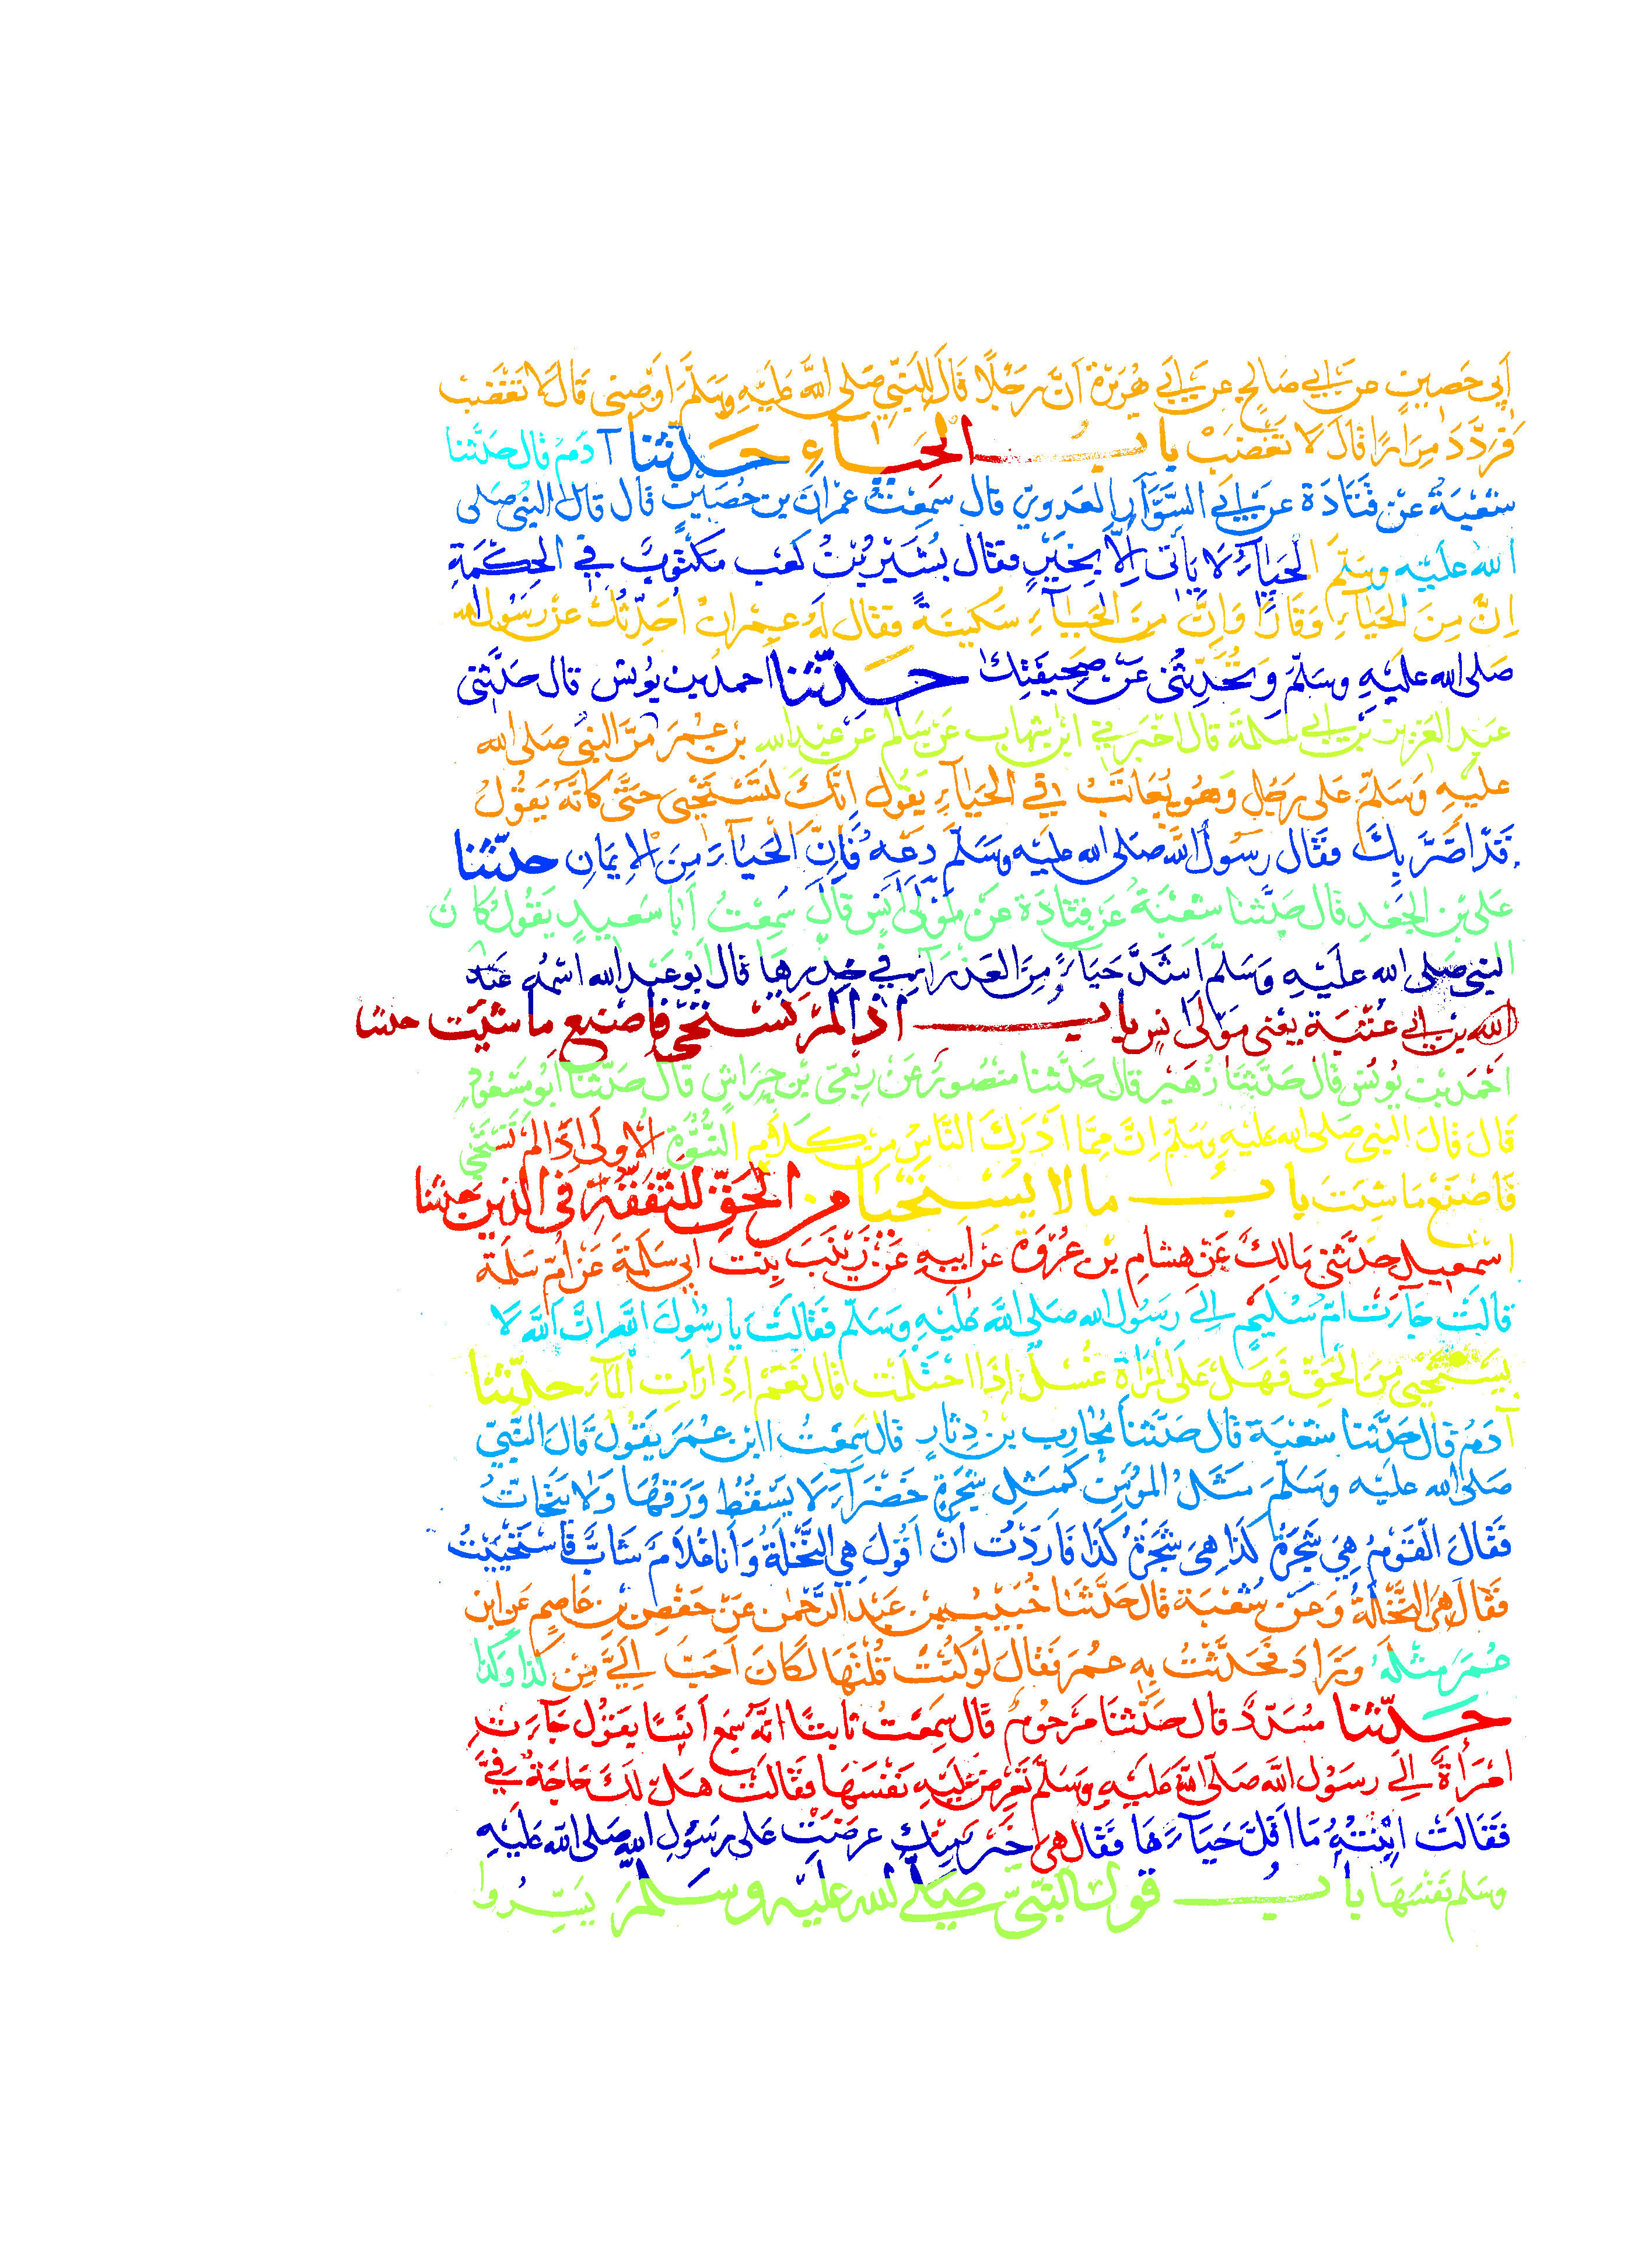 أَبِي حَصِينٍ عن أبي صَالحٍ عن أبي هُرَيْرَةَ أنَّ رَجُلًا قَالَ لِلنَّبِيِّ صَلى اللهُ عَلَيْهِ وَسَلَّمَ اَوْصِنى قَالَ لا تَغْضَبْ
فَرَدَّدَ مِرَارًا قَالَ لا تَغْضَبْ باب الحَيَاءِ حَدَّثَنا آدَمُ قال حَدَّثنا
شعْبَةُ عَنْ قَتَادَةَ عن أبي السَّوَّارِ العَدَويّ قال سَمِعْتُ عمْرَانَ بن حُصَيْنٍ قال قال النبىُّ صَلى
الله عَلَيْهِ وسَلَّمَ الحَيَاءُ لا يَأتى إلَّا بِخَيْرٍ فقَال بُشَيْرُ بْنُ كَعْب مَكْتُوبٌ في الحِكْمَةِ
إنَّ مِنَ الحَيَاءِ وَقَارًا وَإنَّ مِنَ الحَيَاءِ سَكِينَةً فقَال لَهُ عِمْرانُ أحَدِّثُكَ عن رسُول الله
صَلى الله عَلَيْهِ وسَلّم وَتُحَدِّثُنى عَنْ صَحِيفَتِكَ حَدَّثنا احمدُ بن يُونس قال حَدَّثَنى
عبد العَزيز بن أبي سَلَمَةَ قال أخْبَرَني ابْن شِهَاب عَنْ سَالم عَنْ عَبْد الله بن عُمَرَ مَرَّ النبىُّ صَلى الله
عليهِ وَسَلّمَ عَلى رَجُلٍ وَهُو يُعَاتَبُ في الحَيَاءِ يَقُول إنَّكَ لَتَسْتَحْيى حتَّى كَأنَّهُ يَقُوْلُ
قَدْ أضَرَّ بِكَ فقَال رسُولُ الله صَلى الله عليْهِ وَسَلَّمَ دَعْهُ فَإِنَّ الْحَيَاءَ مِنَ الإيمَانِ حدّثنا
عَلى بْن الجَعْدِ قال حَدَّثنا شعْبَةُ عَنْ قتَادَةَ عَنْ مَوْلَى أنَسٍ قَالَ سَمِعْتُ أبَا سَعيدٍ يَقُولُ كَانَ
النبى صَلى الله عليْهِ وَسَلَّمَ أشَدَّ حَيَاءً مِنَ العَذْرَاءِ في خِدْرِهَا قال أبُو عَبْد الله اسْمُهُ عَبْدُ
الله بن أبي عُتْبَةَ يعْنى مَوْلَى أنسٍ باب اذا لَمْ تَسْتَحْي فاصْنع ما شئت حدثنا
أحْمَد بن يُونُس قال حَدَّثَنَا زُهَيْر قال حَدَّثنا مَنْصُور عَنْ رِبْعيّ بْن حِرَاش قَالَ حَدَّثنا أبُو مَسْعُودٍ
قَالَ قَالَ النبى صَلى الله عَليْهِ وسَلّم انَّ مِمَّا أدْرَكَ النَّاسُ مِنْ كَلَامِ النُّبُوَّةِ الاولَى إذَا لَمْ تَسْتَحْي
فَاصْنَعْ مَا شِئتَ باب ما لا يُسْتَحْيَا من الحَقّ للتّفَقُّهِ في الدّين حدّثنا
اسمعيل حَدَّثَنى مَالِكٌ عَنْ هِشامِ بْنِ عُرْوَةَ عَنْ أبِيهِ عَنْ زَيْنَبَ بِنْت أبي سَلَمَةَ عَنْ اُمّ سَلَمَةَ
قالَتْ جَاءَتْ امُّ سُلَيْمٍ الى رَسُول الله صَلى اللهُ عَلَيْهِ وَسَلّم فقَالَتْ يا رسُولَ الله انَّ الله لا
يَسْتَحْيى مِنَ الْحَقّ فَهَلْ عَلَى الْمَرْأةِ غُسْلٌ إذَا احْتَلَمَت قال نَعَمْ إذَا رَأتِ المآءَ حدّثنا
آدَمُ قال حَدَّثنا شعْبَة قال حَدَّثنا مُحَارِب بْن دِثارٍ قال سَمِعْتُ ابن عُمَرَ يَقُولُ قَالَ النَّبِيّ
صَلى الله عليْه وسَلَّمَ مَثَلُ المؤمِنِ كَمَثَلِ شَجَرَةٍ خَضْرَآءَ لا يَسْقُطُ وَرَقُهَا وَلا يَتَحَاتُّ
فَقَالَ الْقَوْمُ هِيَ شَجَرَةُ كَذَا هِيَ شَجَرَةُ كَذَا فَأرَدْتُ أنْ أقُوْلَ هِي النَّخْلَةُ وَأنَا غُلَامٌ شَابٌّ فَاسْتَحْيَيْتُ
فَقَال هِيَ النَّخْلَةُ وَعَنْ شُعْبَة قال حَدَّثنَا خُبَيْب بن عَبْد الرَّحْمٰن عَنْ حَفْصِ بْنِ عَاصِمٍ عَن ابْن
عُمَرَ مِثْلَهُ وَزَادَ فَحَدَّثْتُ بِه عمَرَ فَقَالَ لَوْ كُنْتَ قُلْتَهَا لَكَانَ أحَبَّ إلَيَّ مِنْ كَذَا وَكَذَا
حَدَّثنا مُسَدَّدٌ قال حَدَّثنَا مَرْحُومٌ قَال سَمِعْتُ ثابتًا انَّهُ سَمِعَ أنَسًا يَقُوْل جَآءَتِ
امْرَأةٌ الى رسَوْل اللَّه صَلّى الله عَلَيْهِ وَسَلّمَ تَعْرِضُ عَلَيْهِ نَفْسَهَا فقَالَتْ هَلْ لَكَ حَاجَةٌ فِيَّ
فَقَالَتْ ابْنَتُهُ مَا أقَلَّ حَيَآءَهَا فَقَال هِيَ خَيْرٌ مِنْكِ عرضَتْ عَلى رسَوُلِ الله صَلى الله عَلَيْهِ
وسَلم نَفْسَهَا باب قول النبّيّ صَلى الله عليْهِ وسَلَّمَ يَسِّرُوا